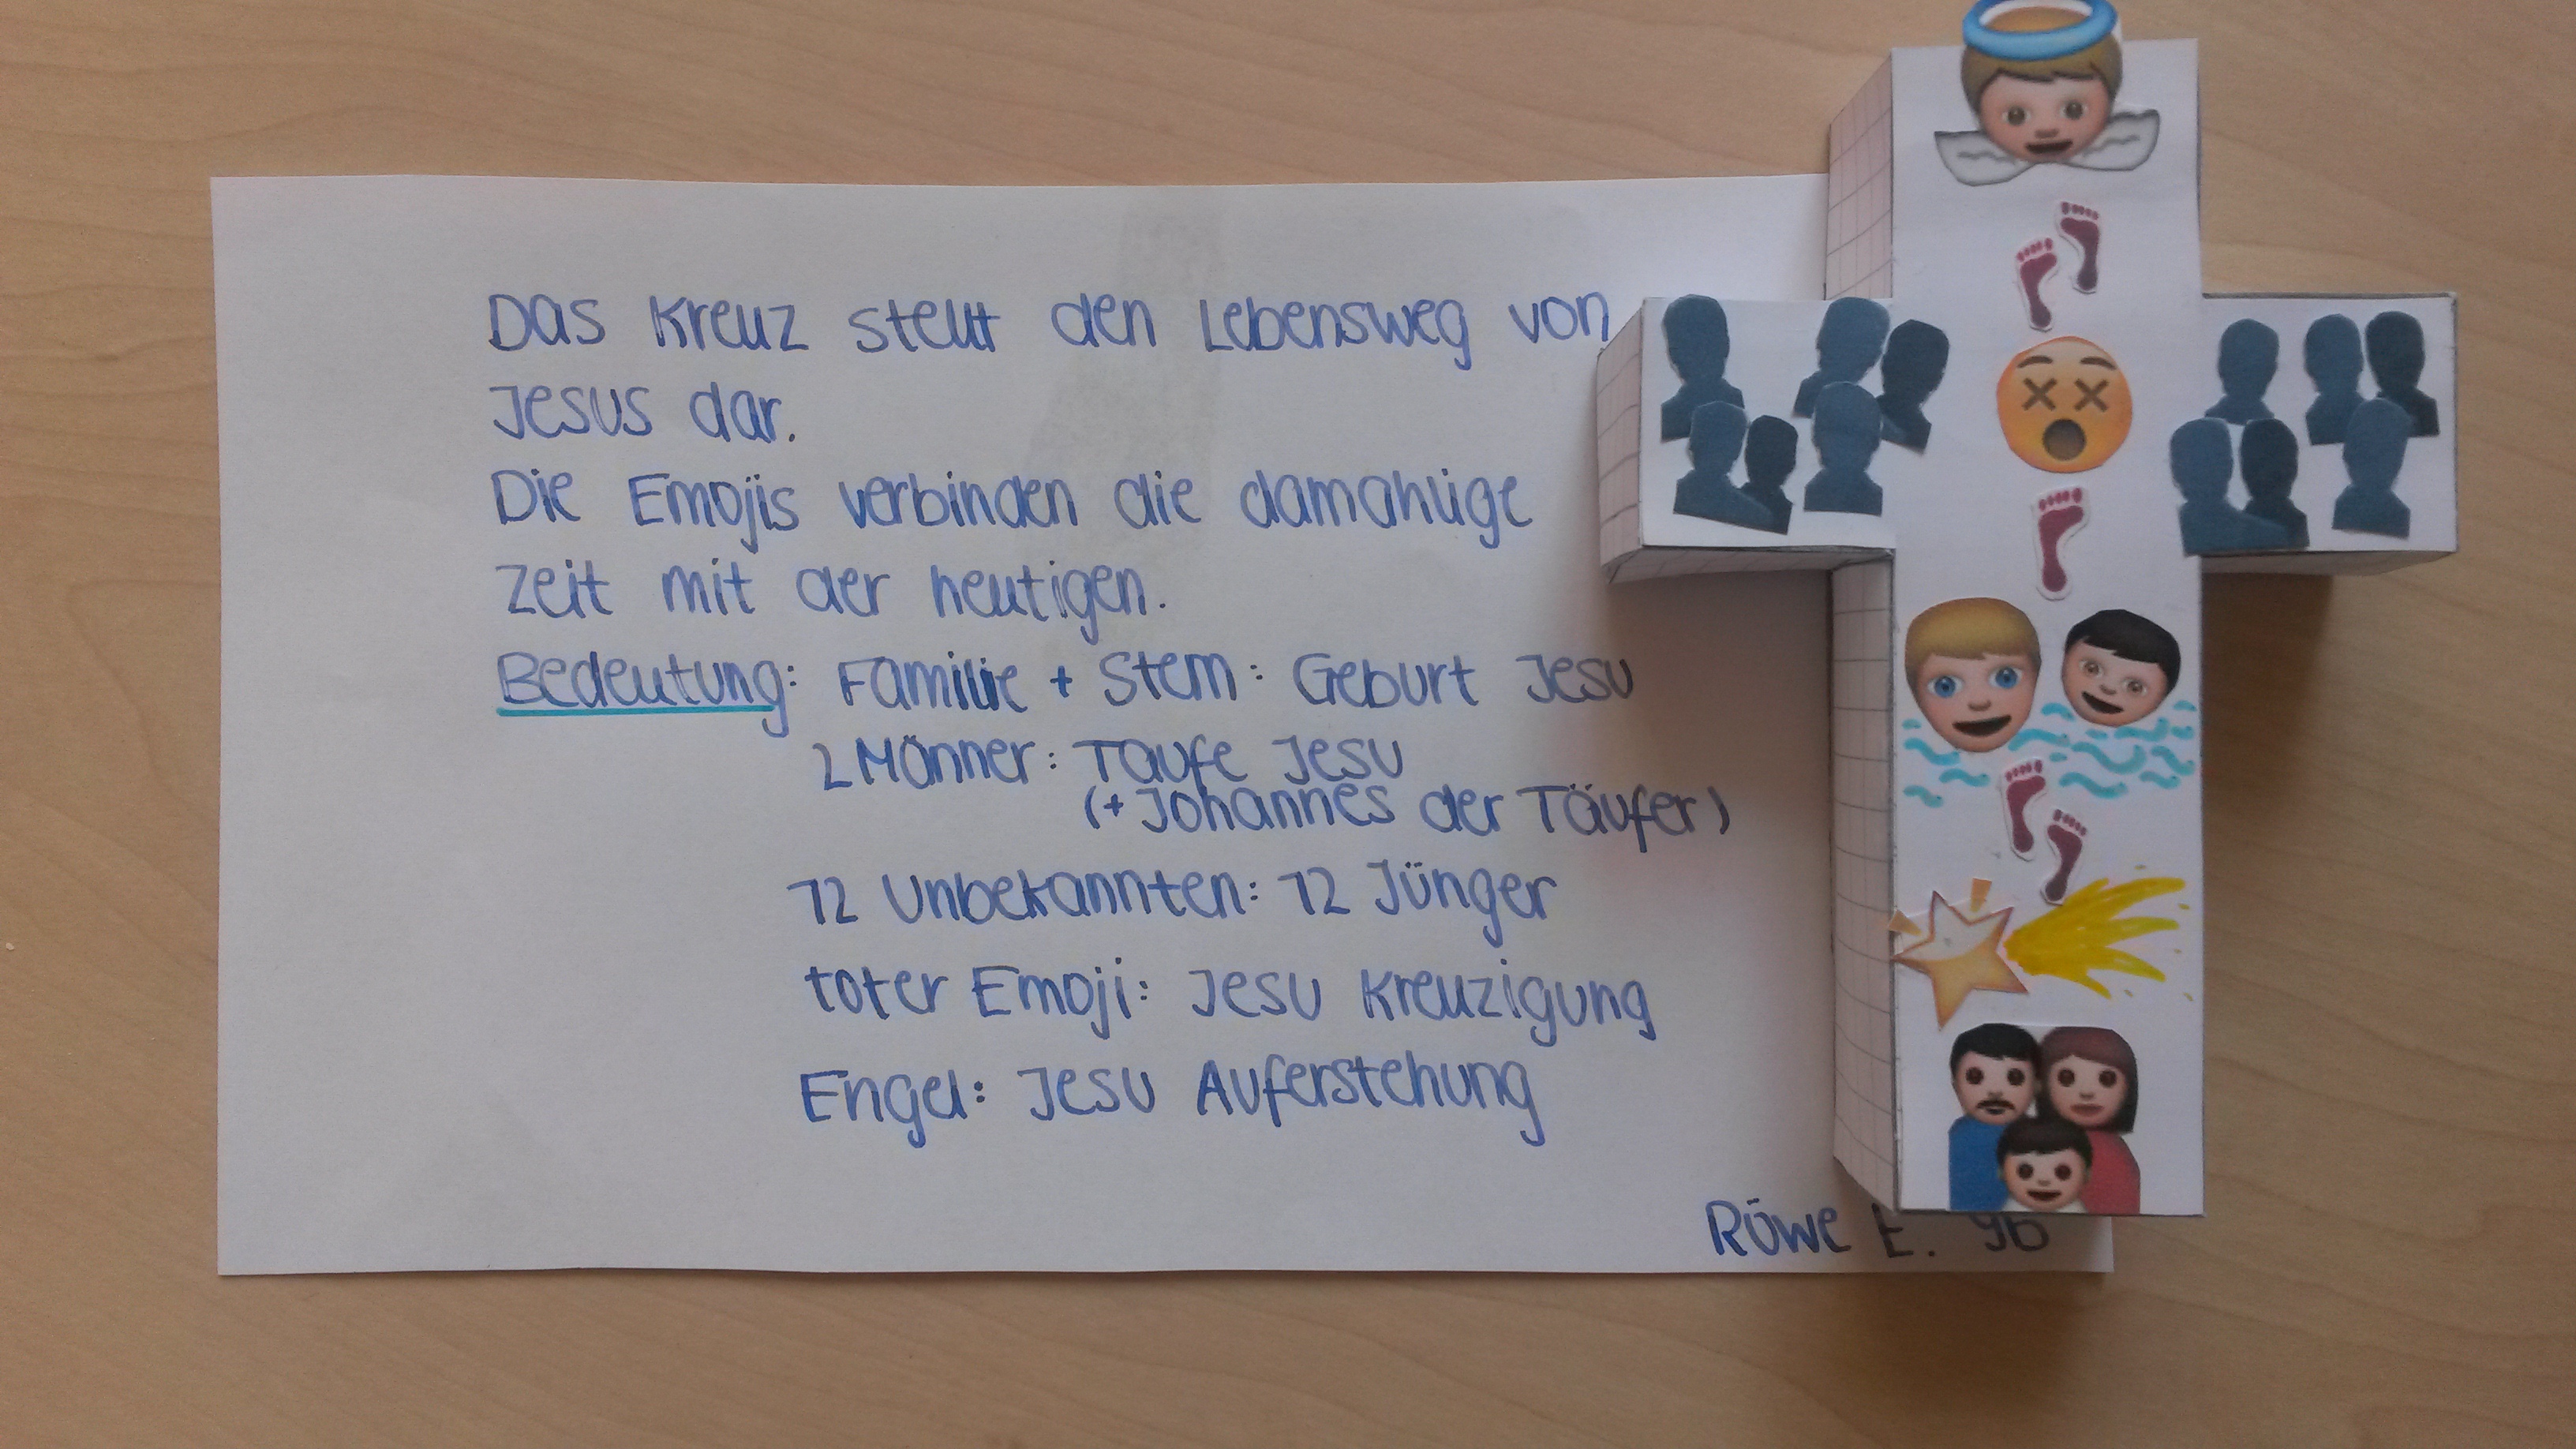 Das Kreuz stellt den Lebensweg von
Jesus dar.
Die Emojis verbinden die damahlige
Zeit mit der heutigen.
Bedeutung: Familie + Stern: Geburt Jesu
2 Männer: Taufe Jesu
(+ Johannes der Täufer)
12 Unbekannten: 12 Jünger
toter Emoji: Jesu Kreuzigung
Engel: Jesu Auferstehung
Röwe E. 9b